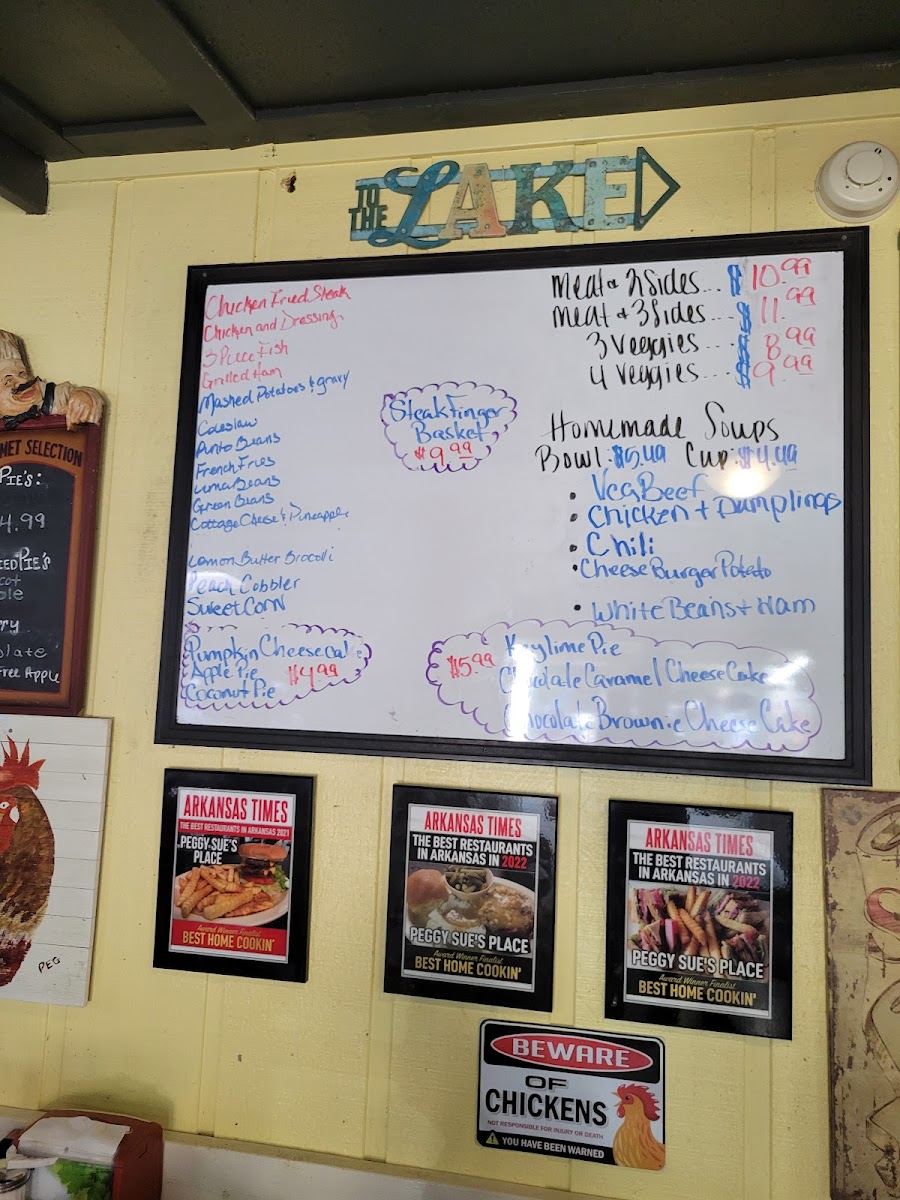 TO THE LAKE
Chicken Fried Steak
Chicken and Dressing
3 Piece Fish
Grilled Ham
Mashed Potatoes & gravy
Coleslaw
Pinto Beans
French Fries
Lima Beans
Green Beans
Cottage Cheese & Pineapple
Lemon Butter Brocolli
Peach Cobbler
Sweet Corn
Pumpkin Cheesecake
Apple Pie $4.99
Coconut Pie
Steak Finger
Basket
$9.99
Meat & 2 Sides... $10.99
Meat & 3 Sides... $11.99
3 Veggies ... $8.99
4 Veggies ... $9.99
Homemade Soups
Bowl: $5.49 Cup: $4.49
• Veg Beef
• Chicken + Dumplings
• Chili
• Cheese Burger Potato
• White Beans + Ham
$5.99 Keylime Pie
Chocolate Caramel Cheese Cake
Chocolate Brownie Cheese Cake
NET SELECTION
PIE'S:
4.99
IED PIE'S
cot
ple
rry
olate
Free Apple
PEG
ARKANSAS TIMES
THE BEST RESTAURANTS IN ARKANSAS 2021
PEGGY SUE'S
PLACE
Award Winner Finalist
BEST HOME COOKIN'
ARKANSAS TIMES
THE BEST RESTAURANTS
IN ARKANSAS IN 2022
PEGGY SUE'S PLACE
Award Winner Finalist
BEST HOME COOKIN'
ARKANSAS TIMES
THE BEST RESTAURANTS
IN ARKANSAS IN 2022
PEGGY SUE'S PLACE
Award Winner Finalist
BEST HOME COOKIN'
BEWARE
OF
CHICKENS
NOT RESPONSIBLE FOR INJURY OR DEATH
YOU HAVE BEEN WARNED